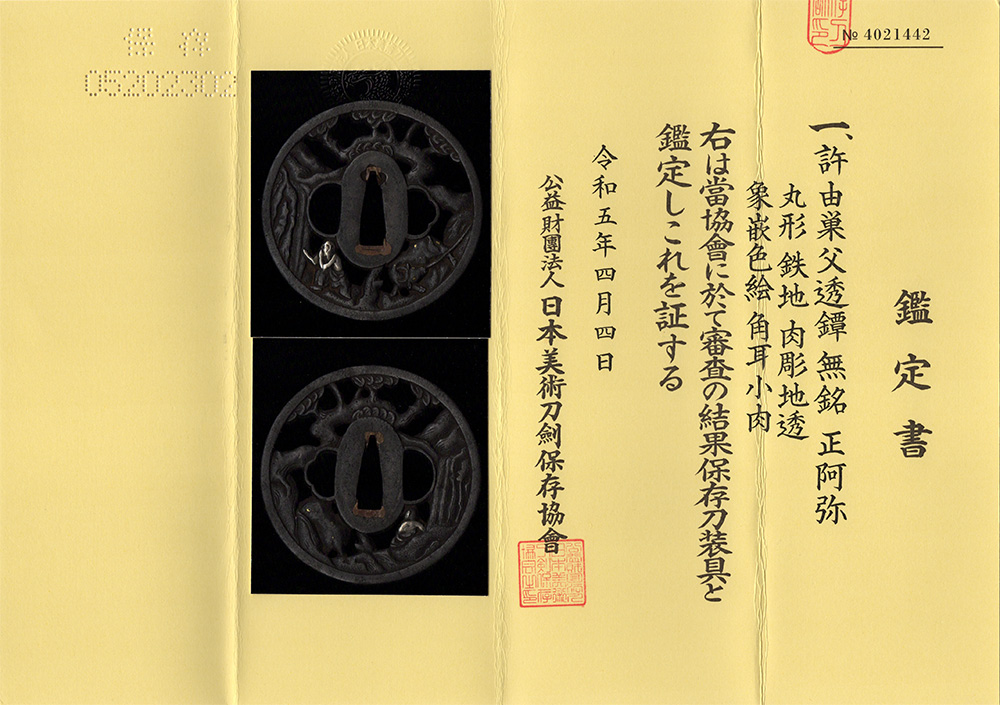 № 4021442
鑑定書
一、許由巣父透鐔 無銘 正阿弥
丸形 鉄地 肉彫地透
象嵌色絵 角耳小肉
右は當協會に於て審査の結果保存刀装具と
鑑定しこれを証する
令和五年四月四日
公益財團法人 日本美術刀劍保存協會
保存
05202302